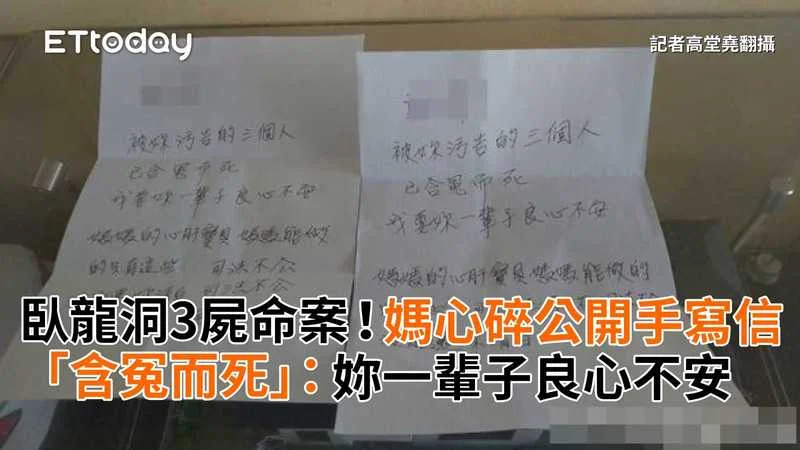 ETtoday
記者高堂堯翻攝
被妳污告的三個人
已含冤而死
我要妳一輩子良心不安
媽媽的心肝寶貝媽媽能做
的只有這些 司法不公
司法不公
被妳污告的三個人
已含冤而死
我要妳一輩子良心不安
媽媽的心肝寶貝媽媽能做的
臥龍洞3屍命案!媽心碎公開手寫信
「含冤而死」:妳一輩子良心不安